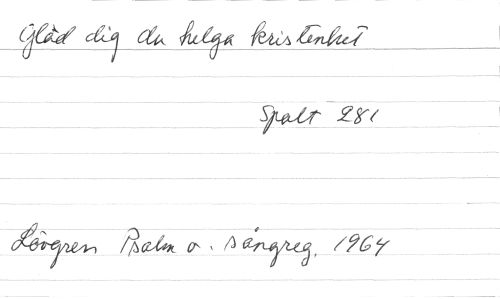 Gläd dig du helga kristenhet
Spalt 281
Lövgren Psalm o. sångreg. 1964